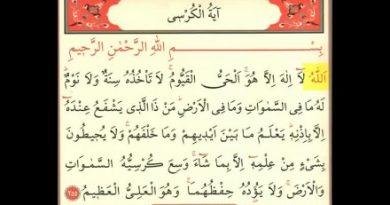 اٰيَةُ الْكُرْسِى
بِسْمِ اللّٰهِ الرَّحْمٰنِ الرَّحٖيمِ
اَللّٰهُ لَٓا اِلٰهَ اِلَّا هُوَۚ اَلْحَىُّ الْقَيُّومُۚ لَا تَأْخُذُهُ سِنَةٌ وَلَا نَوْمٌۜ
لَهُ مَا فِى السَّمٰوَاتِ وَمَا فِى الْاَرْضِۜ مَنْ ذَا الَّذٖى يَشْفَعُ عِنْدَهُٓ
اِلَّا بِاِذْنِهٖۜ يَعْلَمُ مَا بَيْنَ اَيْدٖيهِمْ وَمَا خَلْفَهُمْۚ وَلَا يُحٖيطُونَ
بِشَىْءٍ مِنْ عِلْمِهٖٓ اِلَّا بِمَا شَٓاءَۚ وَسِعَ كُرْسِيُّهُ السَّمٰوَاتِ
وَالْاَرْضَۚ وَلَا يَؤُ۫دُهُ حِفْظُهُمَاۚ وَهُوَ الْعَلِىُّ الْعَظٖيمُ ﴿٢٥٥﴾